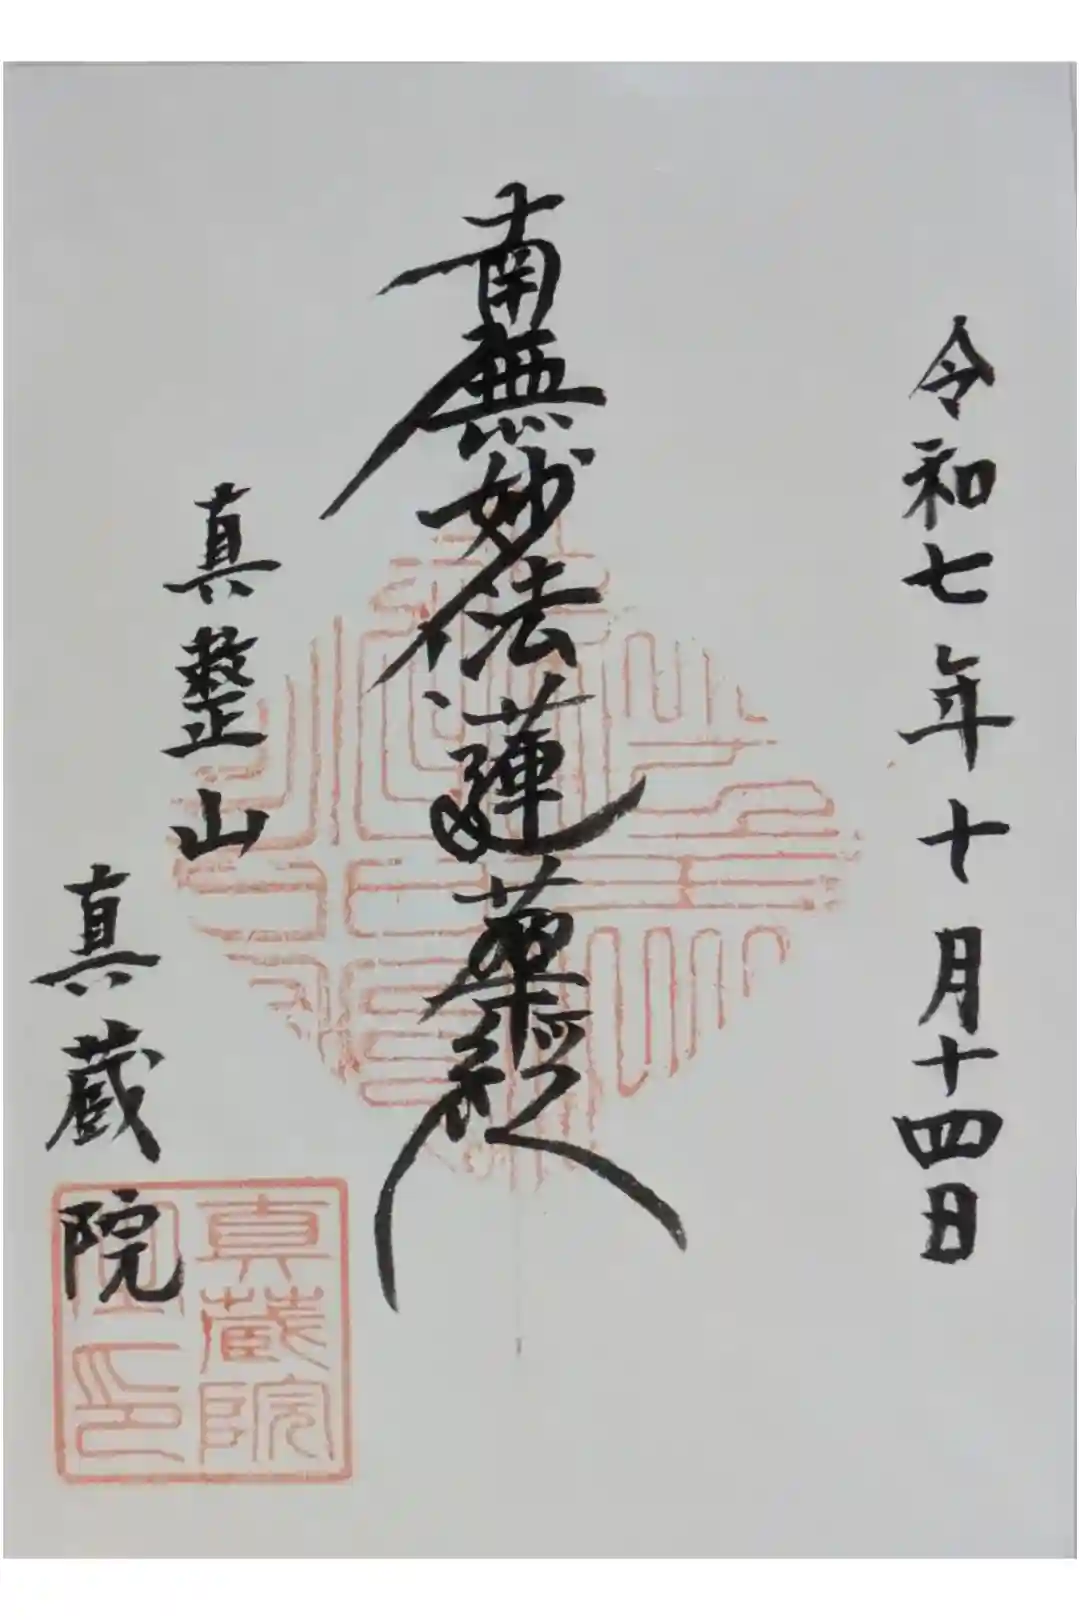 令和七年十月十四日
南無妙法蓮華経
真整山
真蔵院
真蔵院
印